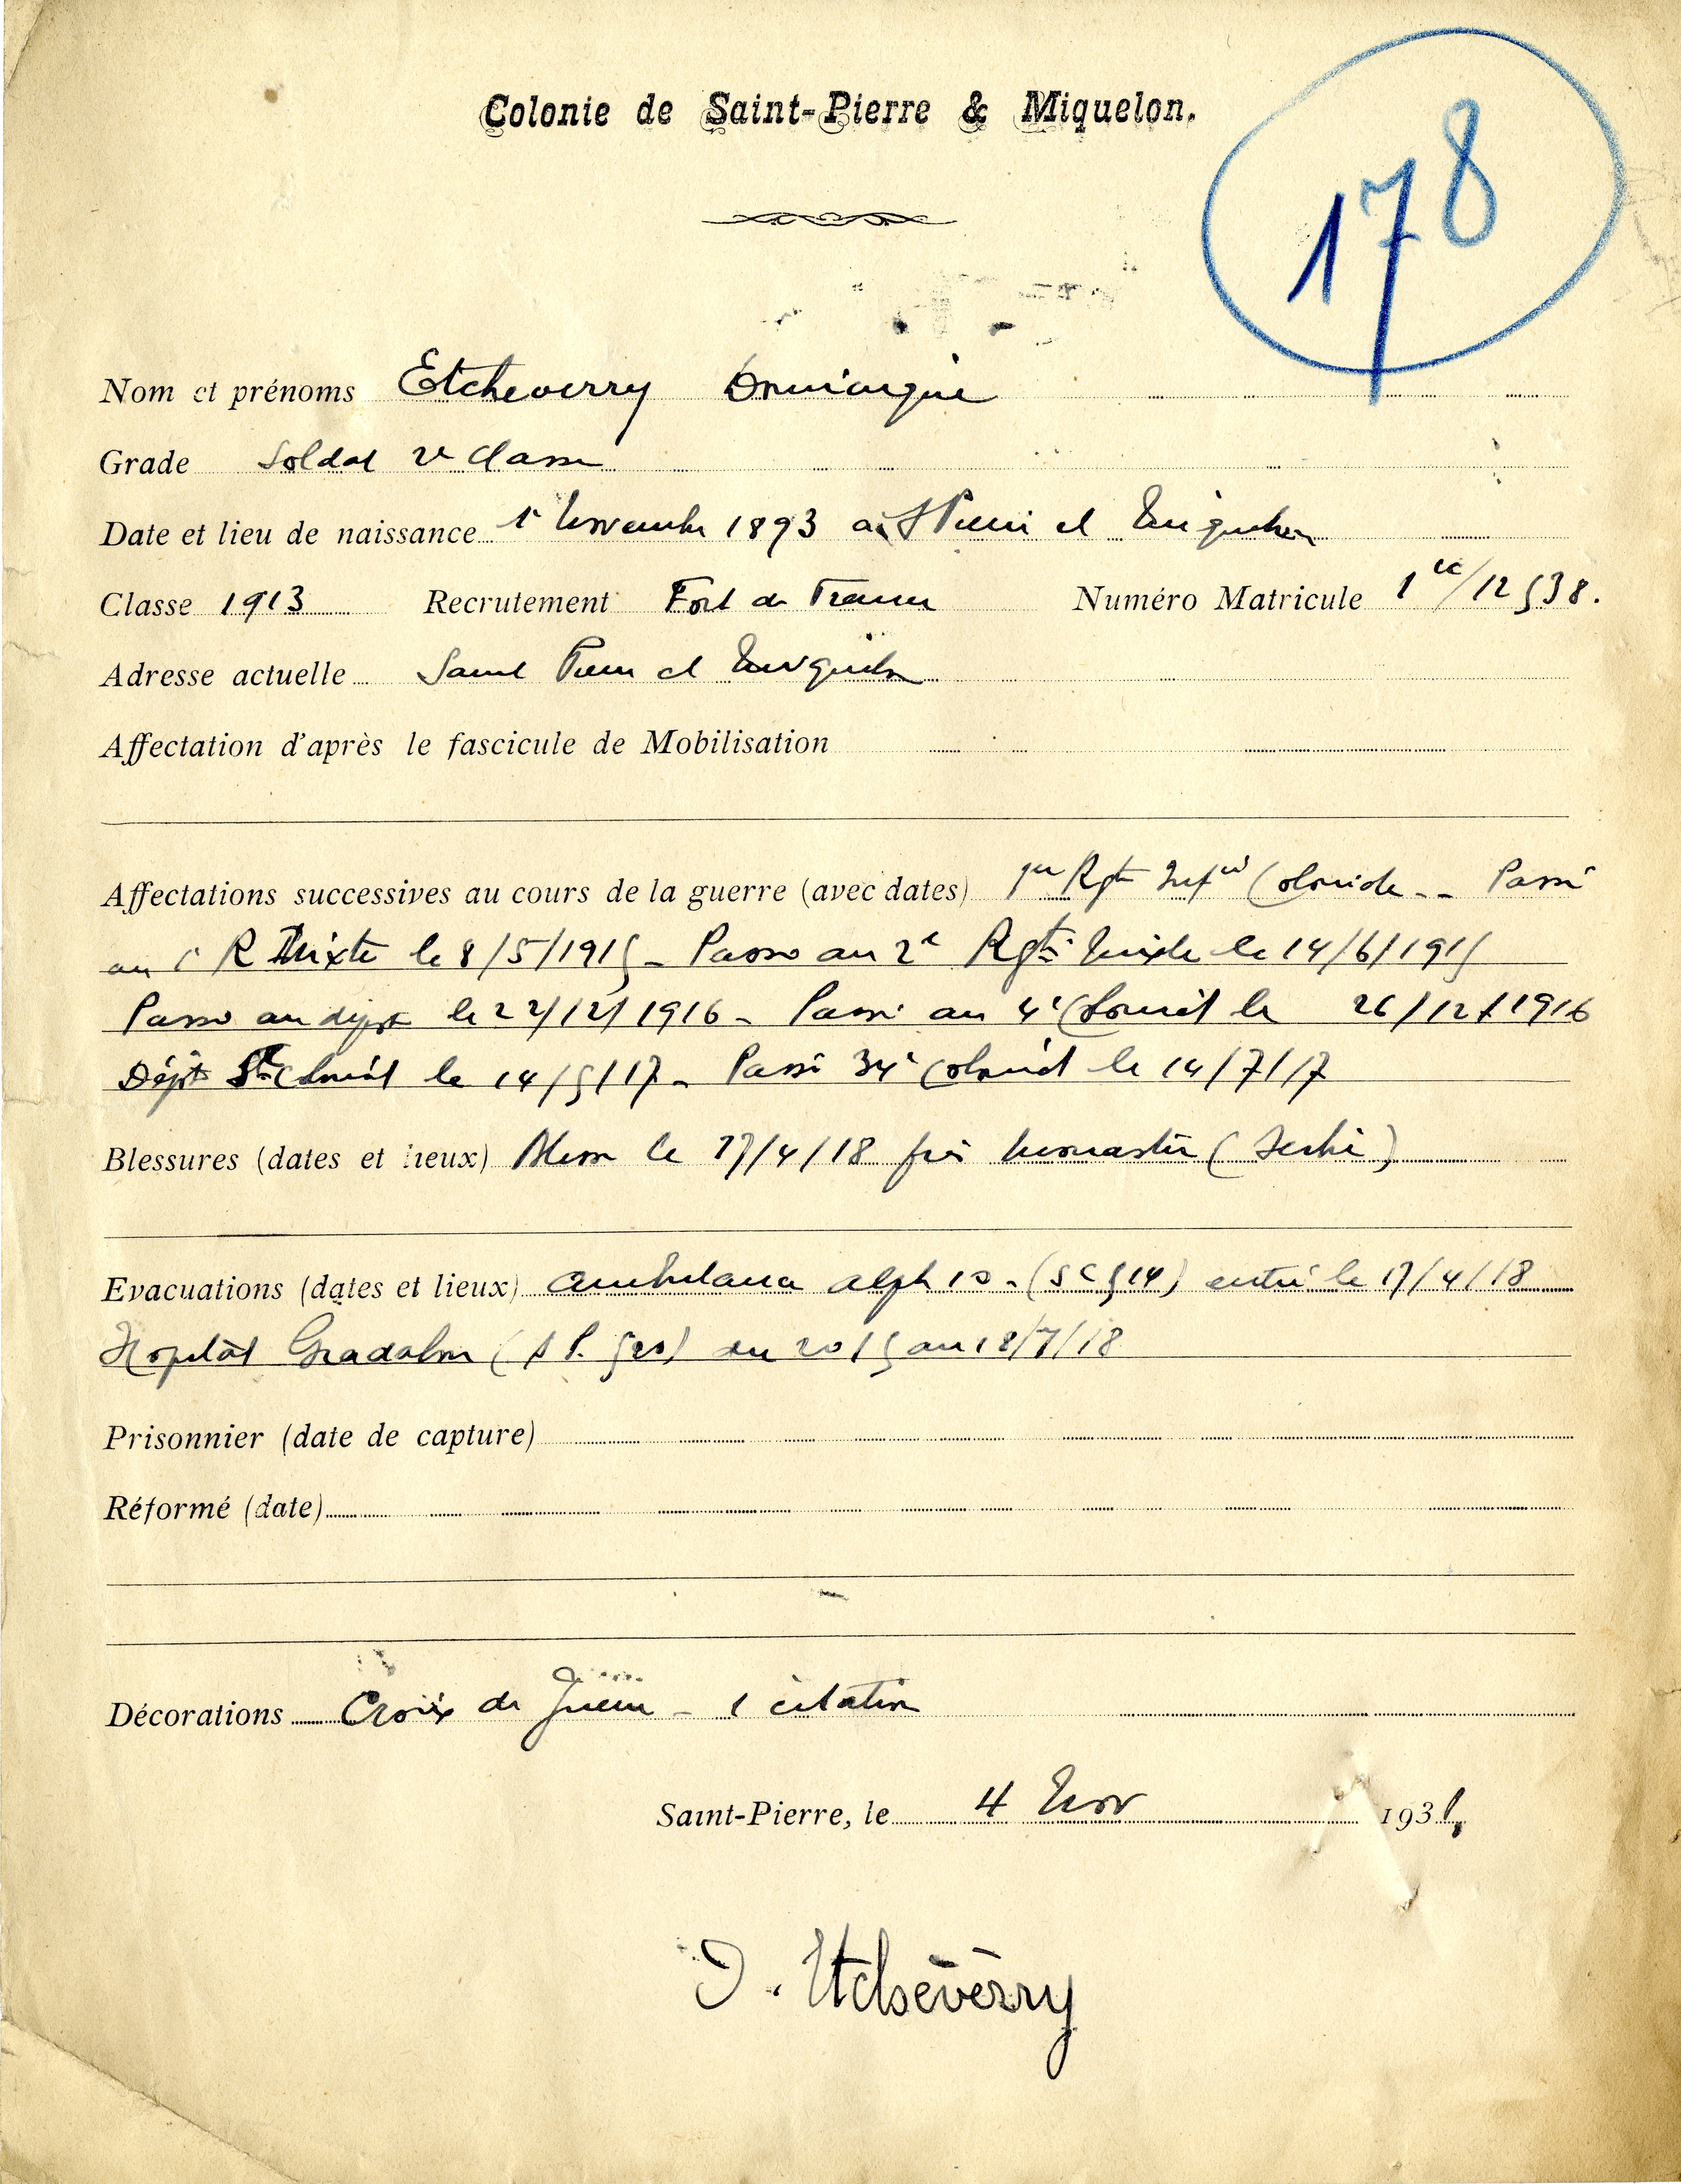 Colonie de Saint-Pierre & Miquelon.
178
Nom et prénoms Etcheverry Dominique
Grade Soldat 2e Classe
Date et lieu de naissance 1r Novembre 1893 à St Pierre et Miquelon
Classe 1913 Recrutement Fort de France Numéro Matricule 1 ec/12538.
Adresse actuelle Saint Pierre et Miquelon
Affectation d'après le fascicule de Mobilisation
Affectations successives au cours de la guerre (avec dates) 1er Rgt Infie Coloniale -- Passé
au 1r R Mixte le 8/5/1915 - Passé au 2e Rgt Mixte le 14/6/1915
Passé au dépôt le 22/12/1916 - Passé au 4e Colonial le 26/12/1916
Dépôt Colonial le 14/5/17 - Passé 34e Colonial le 14/7/17
Blessures (dates et lieux) Blessé le 17/4/18 près Monastir (Serbie)
Evacuations (dates et lieux) Ambulance alph 10 - (S C 514) entré le 17/4/18
Hopital (S P. 520) du 20/5 au 18/7/18
Prisonnier (date de capture)
Réformé (date)
Décorations Croix de Guerre - 1 citation
Saint-Pierre, le 4 Nov 1931,
D. Etcheverry